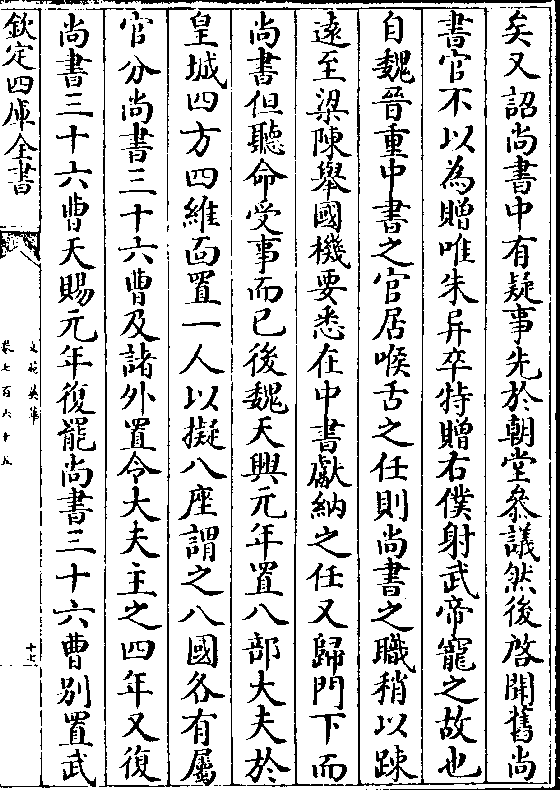 矣又詔尚書中有疑事先於朝堂叅議然後啓聞舊尚
書官不以為贈唯朱异卒特贈右僕射武帝寵之故也
自魏晉重中書之官居喉舌之任則尚書之職稍以踈
遠至梁陳舉國機要悉在中書獻納之任又歸門下而
尚書但聽命受事而已後魏天興元年置八部大夫於
皇城四方四維面置一人以擬八座謂之八國各有屬
官分尚書三十六曹及諸外置令大夫主之四年又復
尚書三十六曹天賜元年復罷尚書三十六曹別置武
欽定四庫全書
文苑英華
卷七百六十五
十七